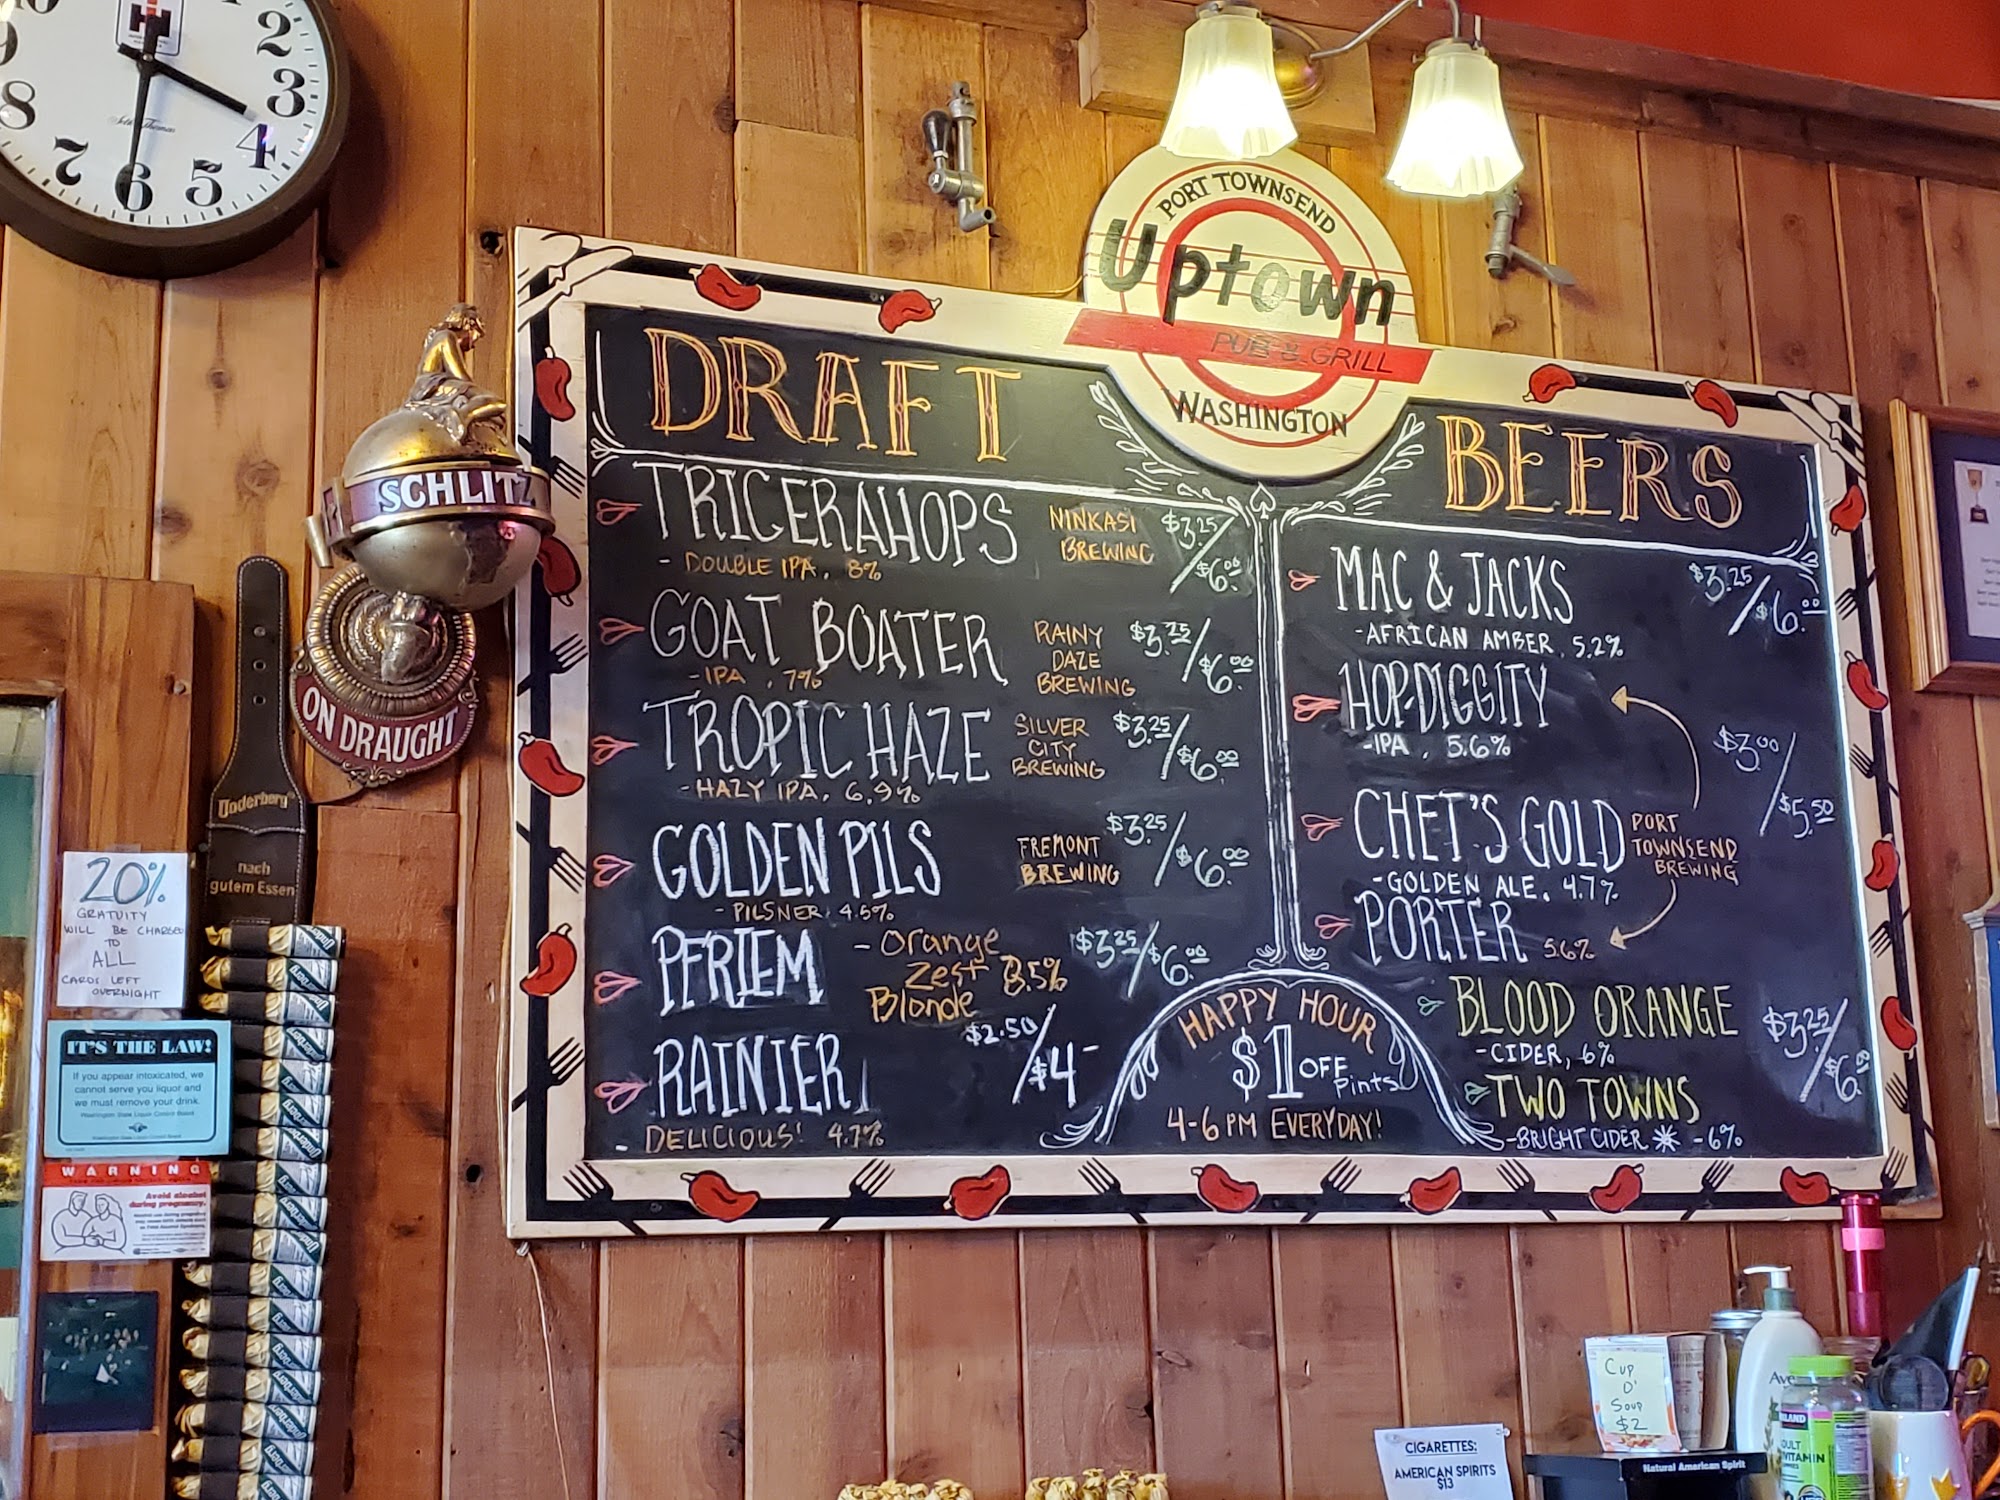 2
3
4
5
6
7
8
9
Seth Thomas
PORT TOWNSEND
Uptown
PUB & GRILL
WASHINGTON
DRAFT
BEERS
TRICERAHOPS
- DOUBLE IPA, 8%
NINKASI
BREWING
$3.25/$6.00
GOAT BOATER
- IPA, 7%
RAINY
DAZE
BREWING
$3.25/$6.00
TROPIC HAZE
- HAZY IPA, 6.9%
SILVER
CITY
BREWING
$3.25/$6.00
GOLDEN PILS
- PILSNER, 4.5%
FREMONT
BREWING
$3.25/$6.00
PFRIEM
- Orange
Zest
Blonde
$3.25/$6.00
RAINIER
- DELICIOUS! 4.7%
$2.50/$4-
MAC & JACKS
- AFRICAN AMBER, 5.2%
$3.25/$6.00
HOP-DIGGITY
- IPA, 5.6%
CHET'S GOLD
- GOLDEN ALE, 4.7%
PORT
TOWNSEND
BREWING
$3.00/$5.50
PORTER 5.6%
BLOOD ORANGE
- CIDER, 6%
TWO TOWNS
- BRIGHT CIDER - 6%
$3.25/$6.00
HAPPY HOUR
$1 OFF
Pints
4-6 PM EVERYDAY!
SCHLITZ
ON DRAUGHT
Underberg
nach
gutem Essen
20%
GRATUITY
WILL BE CHARGED
TO
ALL
CARDS LEFT
OVERNIGHT
IT'S THE LAW!
If you appear intoxicated, we
cannot serve you liquor and
we must remove your drink.
Washington State Liquor Control Board
WARNING
Avoid alcohol
during pregnancy.
CUP
O'
SOUP
$2
CIGARETTES:
AMERICAN SPIRITS
$13
Natural American Spirit
Ave